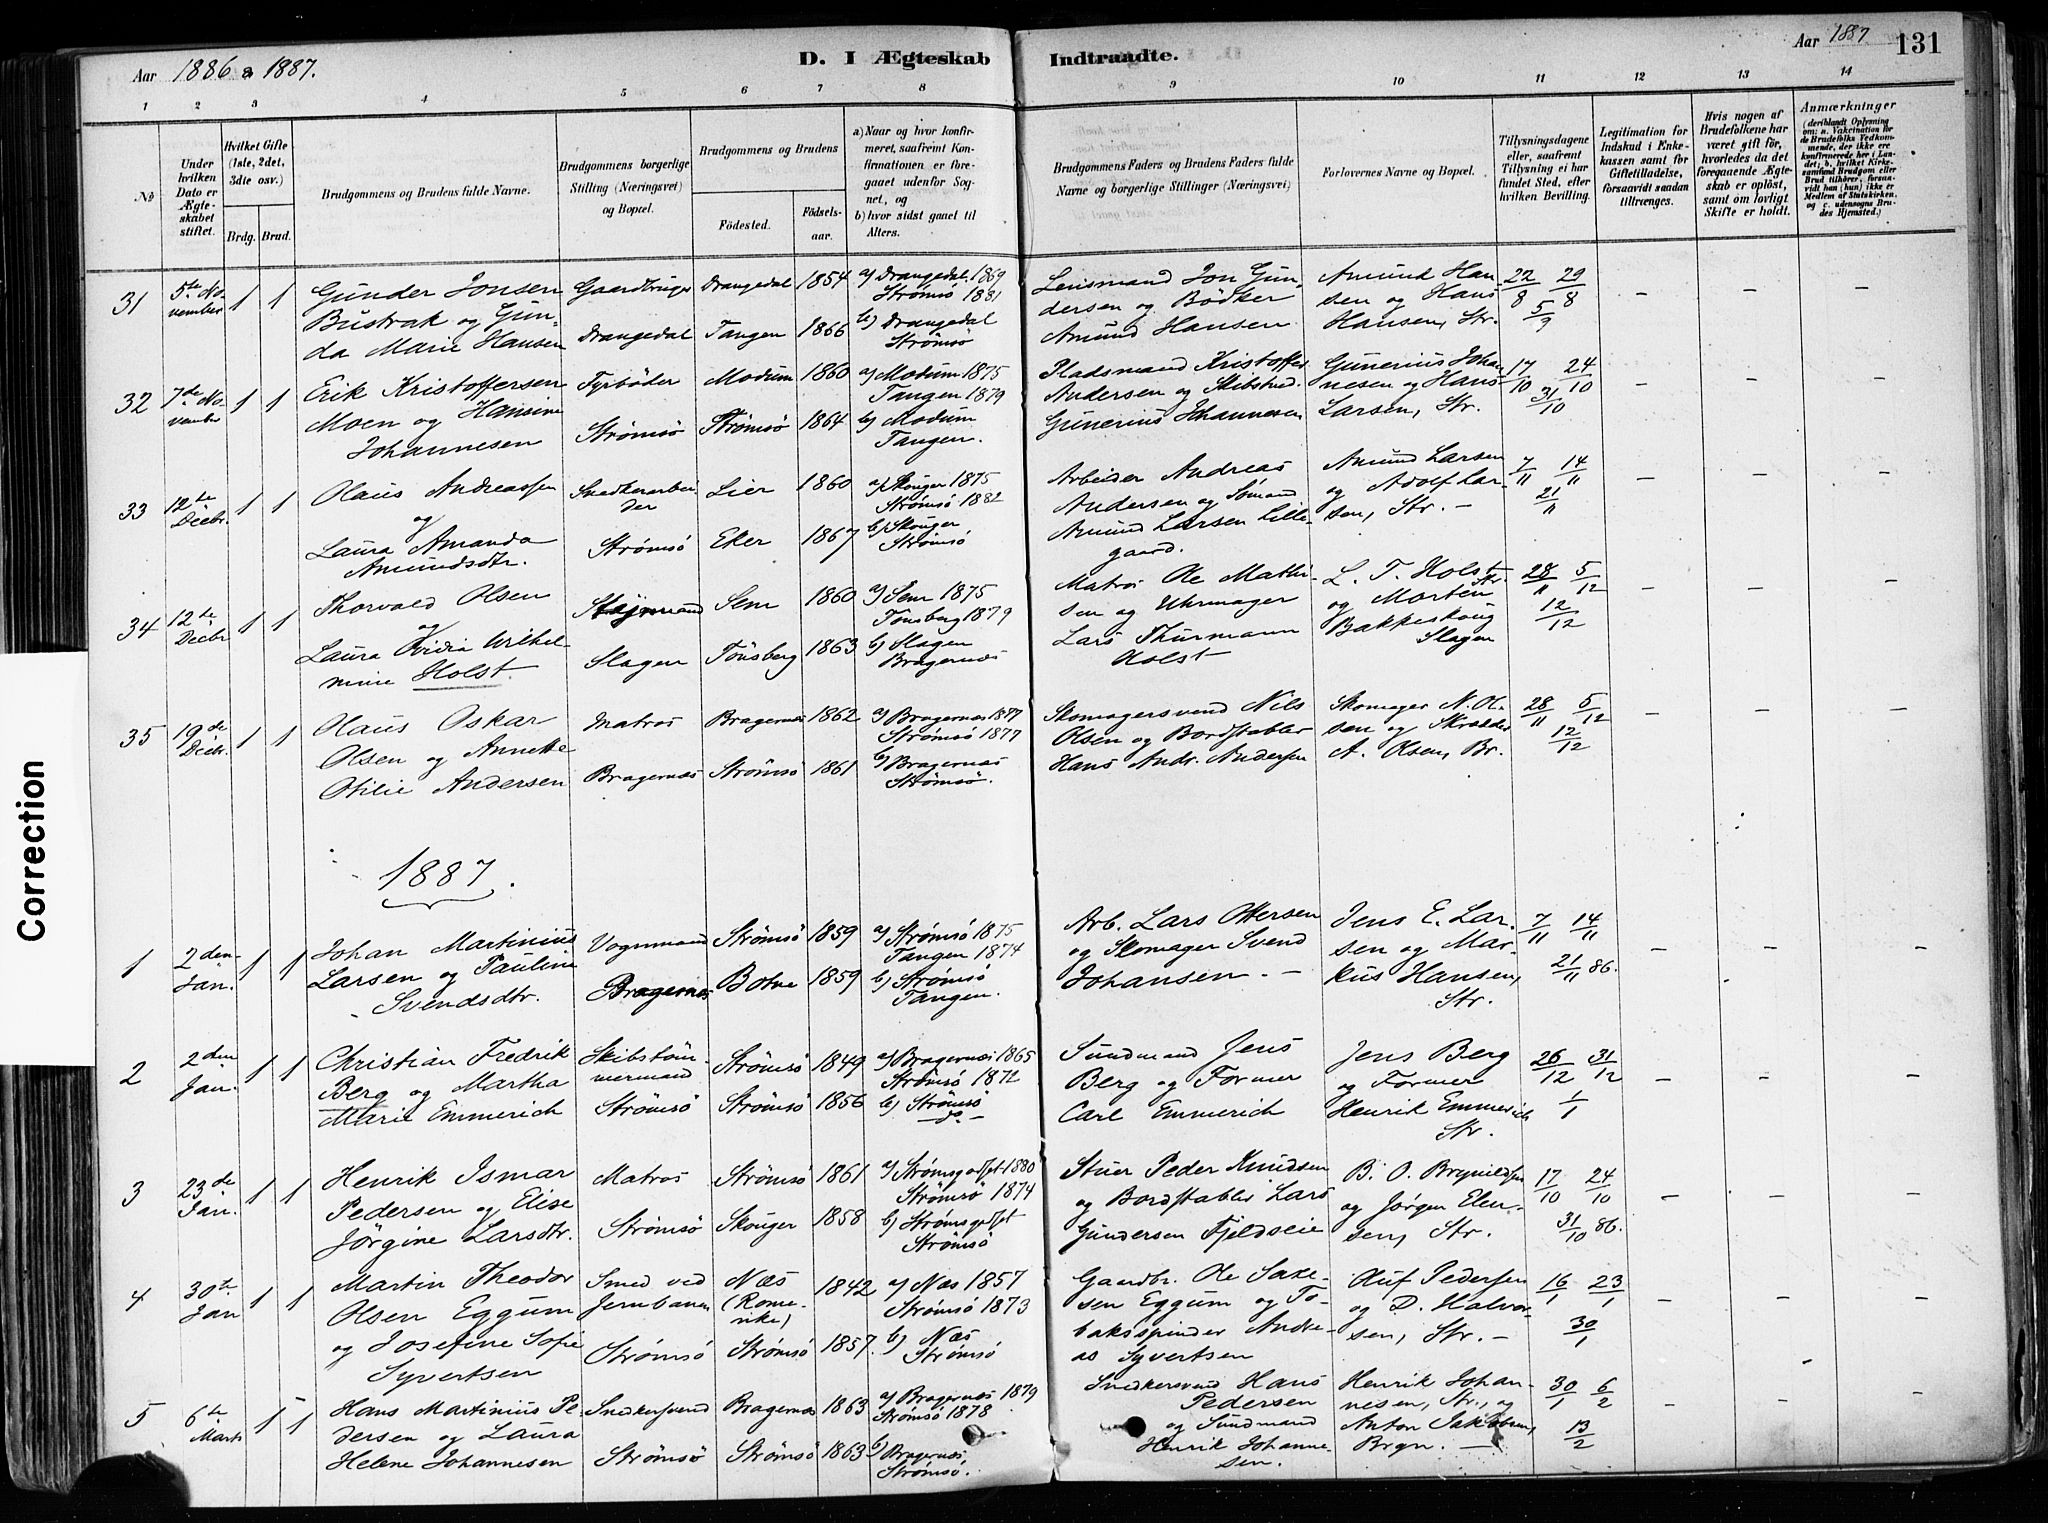 Aar 1886 a 1887.
D. I Ægteskab Indtraadte.
Aar 1887
131
1 2 3 4 5 6 7 8 9 10 11 12 13 14
No
Under hvilken Dato er Ægteskabet stiftet.
Hvilket Gifte (1ste, 2det, 3die osv.)
Brdg. Brud.
Brudgommens og Brudens fulde Navne.
Brudgommens borgerlige Stilling (Næringsvei) og Bopæl.
Brudgommens og Brudens
Födested.
Födselsaar.
a) Naar og hvor konfirmeret, saafremt Konfirmationen er foregaaet udenfor Sognet, og
b) hvor sidst gaaet til Alters.
Brudgommens Faders og Brudens Faders fulde Navne og borgerlige Stillinger (Næringsvei)
Forlovernes Navne og Bopæl.
Tillysningsdagene eller, saafremt Tillysning ei har fundet Sted, efter hvilken Bevilling.
Legitimation for Indskud i Enkekassen samt for Giftetilladelse, forsaavidt saadan tiltrænges.
Hvis nogen af Brudefolkene har været gift før, hvorledes da det foregaaende Ægteskab er oplöst, samt om lovligt Skifte er holdt.
Anmærkninger (deriblandt Oplysning om: a. Vakcination for de Brudefolks Vedkommende, der ikke ere konfirmerede her i Landet; b. hvilket Kirkesamfund Brudgom eller Brud tilhörer, forsaavidt han (hun) ikke er Medlem af Statskirken, og c. udensogns Brudes Hjemsted.)
31 5te November 1 1 Gunder Jonsen Bustrak og Gunda Marie Hansen
Gaardbruger Drangedal
Drangedal 1854
Tangen 1866
a) Drangedal 1869 Strömsö 1881
b) Drangedal Strömsö
Lensmand Jon Gundersen og Bödker Amund Hansen
Amund Hansen og Hans Hansen, Str.
22/8 29/8 5/9
32 7de November 1 1 Erik Kristoffersen Moen og Hansine Johannesen
Fyrböder Strömsö
Modum 1860
Strömsö 1864
a) Modum 1875 Tangen 1879
b) Modum Tangen.
Pladsmand Kristoffer Andersen og Skibstöd. Gunerius Johannesen
Gunerius Johannesen og Hans Larsen, Str.
17/10 24/10 31/10
33 12te Decbr. 1 1 Olaus Andreassen og Laura Amanda Amundsdtr.
Snedkerarbeider Strömsö
Lier 1860
Eker 1867
a) Skouger 1875 Strömsö 1882
b) Skouger Strömsö
Arbeider Andreas Andersen og Sömand Amund Larsen Lillegaard.
Amund Larsen og Adolf Larsen, Str. -
7/11 14/11 21/11
34 12te Decbr 1 1 Thorvald Olsen og Laura Ovidia Wilhelmine Holst.
Slagen
Sem 1860
Tönsberg 1863
a) Sem 1875 Tönsberg 1879
b) Slagen Bragernæs
Matros Ole Mathisen og Uhrmager Lars Thurmann Holst
L. T. Holst Str. og Morten Bakkeskoug Slagen
28/11 5/12 12/12
35 19de Decbr. 1 1 Olaus Oskar Olsen og Annette Otilie Andersen
Matros Bragernæs
Bragernæs 1862
Strömsö 1861
a) Bragernæs 1877 Strömsö 1877
b) Bragernæs Strömsö.
Skomagersvend Nils Olsen og Bordstabler Hans Andr. Andersen
Skomager N. Olsen og Skrædder A. Olsen, Br.
28/11 5/12 12/12
1887.
1 2den Jan. 1 1 Johan Martinius Larsen og Pauline Svendsdtr.
Vognmand Bragernæs
Strömsö 1859
Botne 1859
a) Strömsö 1875 Tangen 1874
b) Strömsö Tangen.
Arb. Lars Ottersen og Skomager Svend Johansen. -
Jens E. Larsen og Markus Hansen, Str.
7/11 14/11 21/11 86.
2 2den Jan. 1 1 Christian Fredrik Berg og Martha Marie Emmerich
Skibstömmermand Strömsö
Strömsö 1849
Strömsö 1856
a) Bragernæs 1865 Strömsö 1872
b) Strömsö do -
Sundmand Jens Berg og Former Carl Emmerich
Jens Berg og Former Henrik Emmerich Str.
26/12 31/12 1/1
3 23de Jan. 1 1 Henrik Ismar Pedersen og Elise Jörgine Larsdtr.
Matros Strömsö
Strömsö 1861
Skouger 1858
a) Strömsgodset 1880 Strömsö 1874
b) Strömsgodset Strömsö
Stuer Peder Knudsen og Bordstabler Lars Gundersen Fjeldseie
B. O. Brynildsen og Jörgen Elensen, Str.
17/10 24/10 31/10 86.
4 30te Jan 1 1 Martin Theodor Olsen Eggum og Josefine Sofie Syvertsen
Smed ved Jernbanen Strömsö
Næs (Romerike) 1842
Strömsö 1857.
a) Næs 1857 Strömsö 1873
b) Næs Strömsö
Gaardbr. Ole Saxesen Eggum og Tobaksspinder Andreas Syvertsen
Oluf Pedersen og D. Halvorsen, Str. -
16/1 23/1 30/1
5 6te Marts 1 1 Hans Martinius Pedersen og Laura Helene Johannesen
Snedkersvend Strömsö
Bragernæs 1863
Strömsö 1863
a) Bragernæs 1879 Strömsö 1878
b) Bragernæs, Strömsö.
Snedkersvend Hans Pedersen og Sundmand Henrik Johannesen.
Henrik Johannesen, Str., og Anton Jakobsen, Brgn. -
30/1 6/2 13/2
Correction